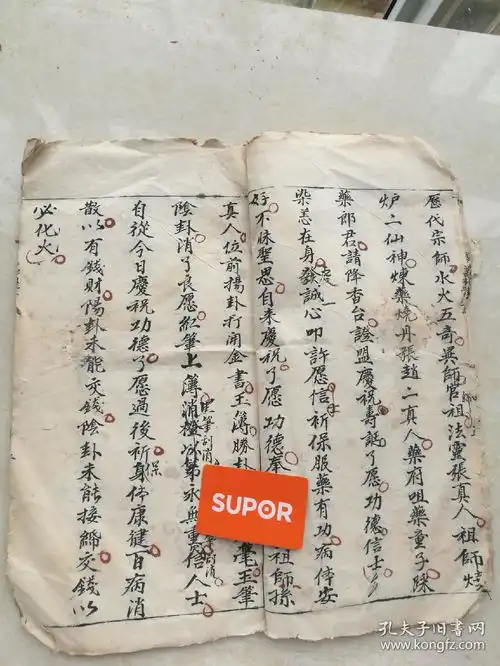 歷代宗師水火五奇吳師管祖法靈張真人祖師
炉二仙神煉藥燒丹張趙二真人藥府咀藥童子採
藥郎君請降香台證盟慶祝壽誕了愿功德信士
染恙在身發誠心叩許愿信祈保服藥有功病体安
好不昧聖恩自来慶祝了愿功德奉 祖師孫
真人位前揚卦打開金書玉簿勝卦 毫玉筆
陰卦消了良愿紅筆上簿消 永無重 信人士
自從今日慶祝功德了愿過後祈保身体康健百病消
散以有錢財陽卦未能交錢陰卦未能接師交錢以
必化火
SUPOR
孔夫子旧書网
www.kongfz.com